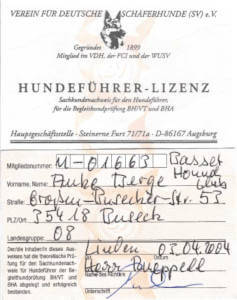 VEREIN FÜR DEUTSCHE SCHÄFERHUNDE (SV) e.V.
Gegründet 1899
Mitglied im VDH, der FCI und der WUSV
HUNDEFÜHRER-LIZENZ
Sachkundenachweis für den Hundeführer,
für die Begleithundprüfung BH/VT und BHA
Hauptgeschäftsstelle - Steinerne Furt 71/71a - D-86167 Augsburg
Mitgliedsnummer: U-016163 Basset
Vorname, Name: Anke Berge Hound
Straße: Großen-Busecker-Str. 53 Club
PLZ/Ort: 35418 Buseck
Landesgruppe: 08
Der/die Inhaber/in dieses Ausweises hat die theoretische Prüfung für den Sachkundenachweis für Hundeführer der Begleithundprüfung BH/VT und BHA abgelegt und erfolgreich bestanden.
Linden 03.04.2004
Herr